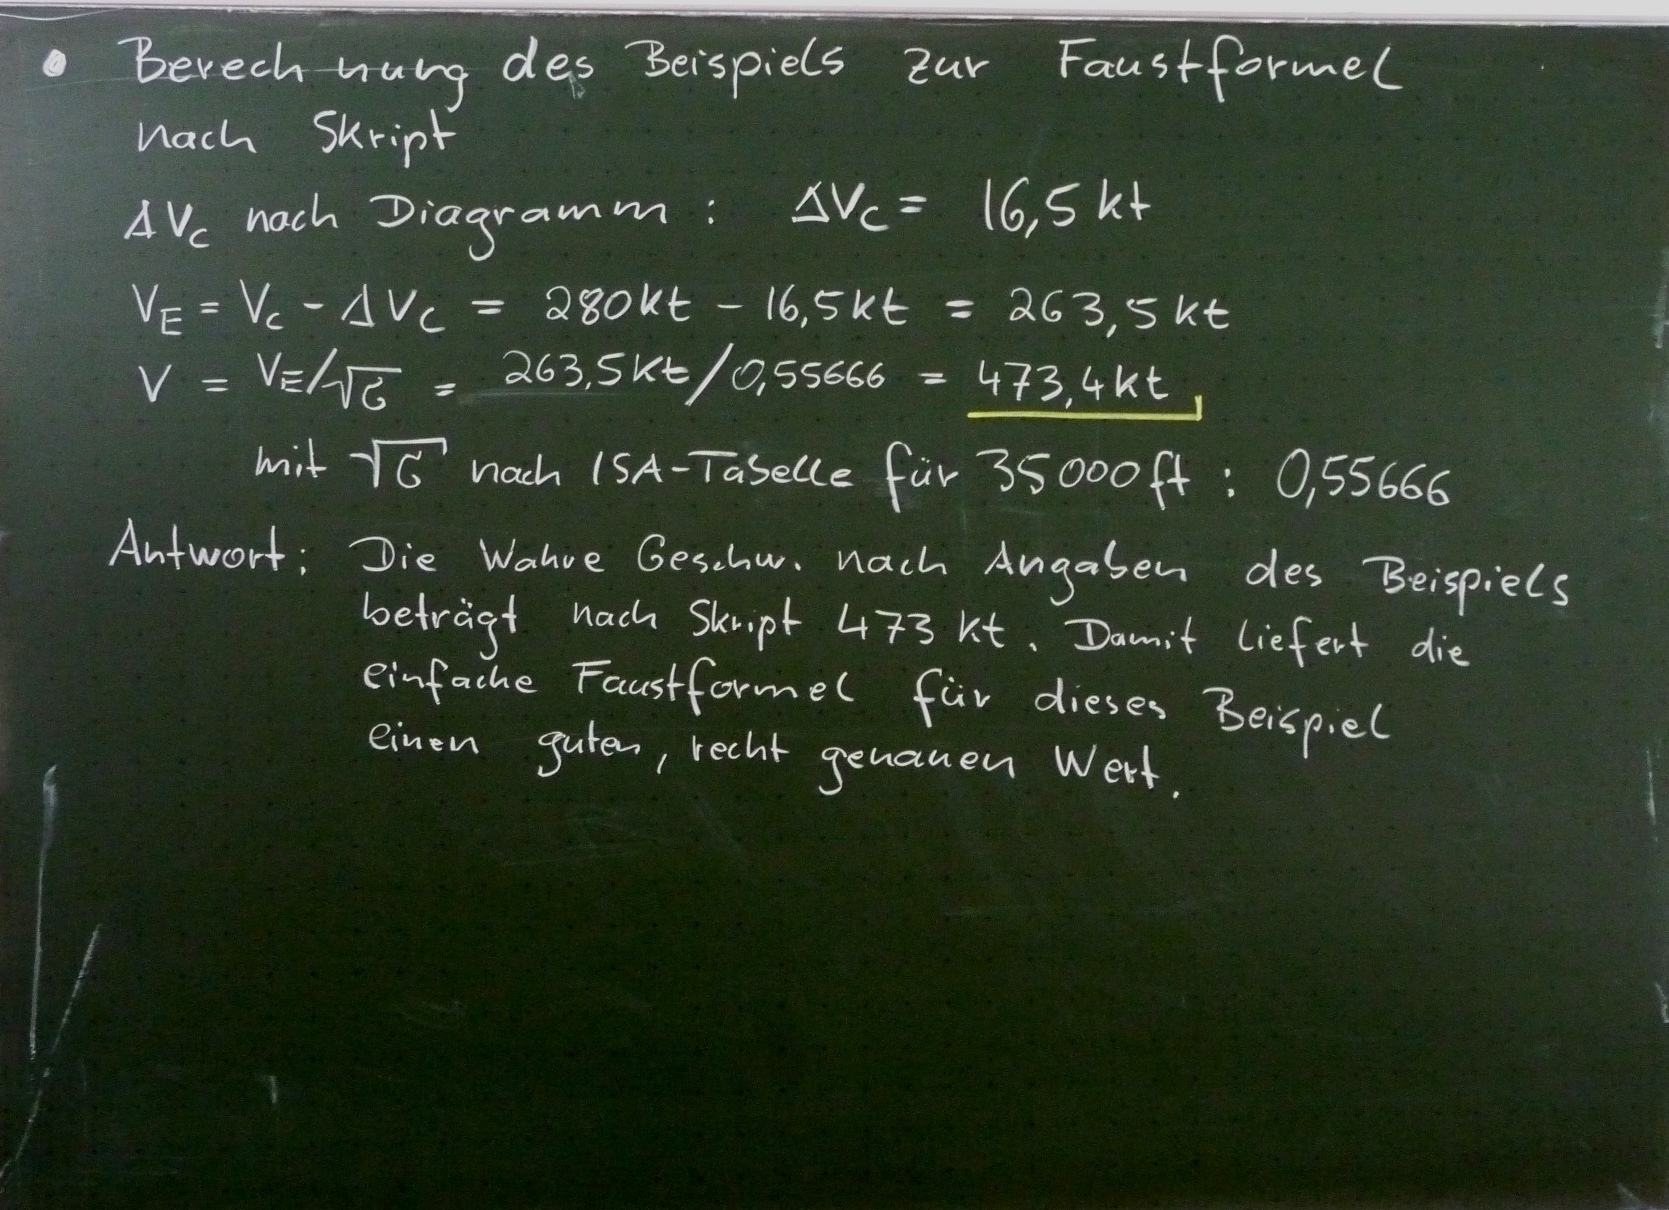 • Berechnung des Beispiels zur Faustformel
nach Skript
ΔVc nach Diagramm : ΔVc = 16,5 kt
VE = Vc - ΔVc = 280kt - 16,5kt = 263,5 kt
V = VE/√σ = 263,5kt/0,55666 = 473,4kt
mit √σ nach ISA-Tabelle für 35000ft : 0,55666
Antwort: Die Wahre Geschw. nach Angaben des Beispiels
beträgt nach Skript 473 kt. Damit liefert die
einfache Faustformel für dieses Beispiel
einen guten, recht genauen Wert.